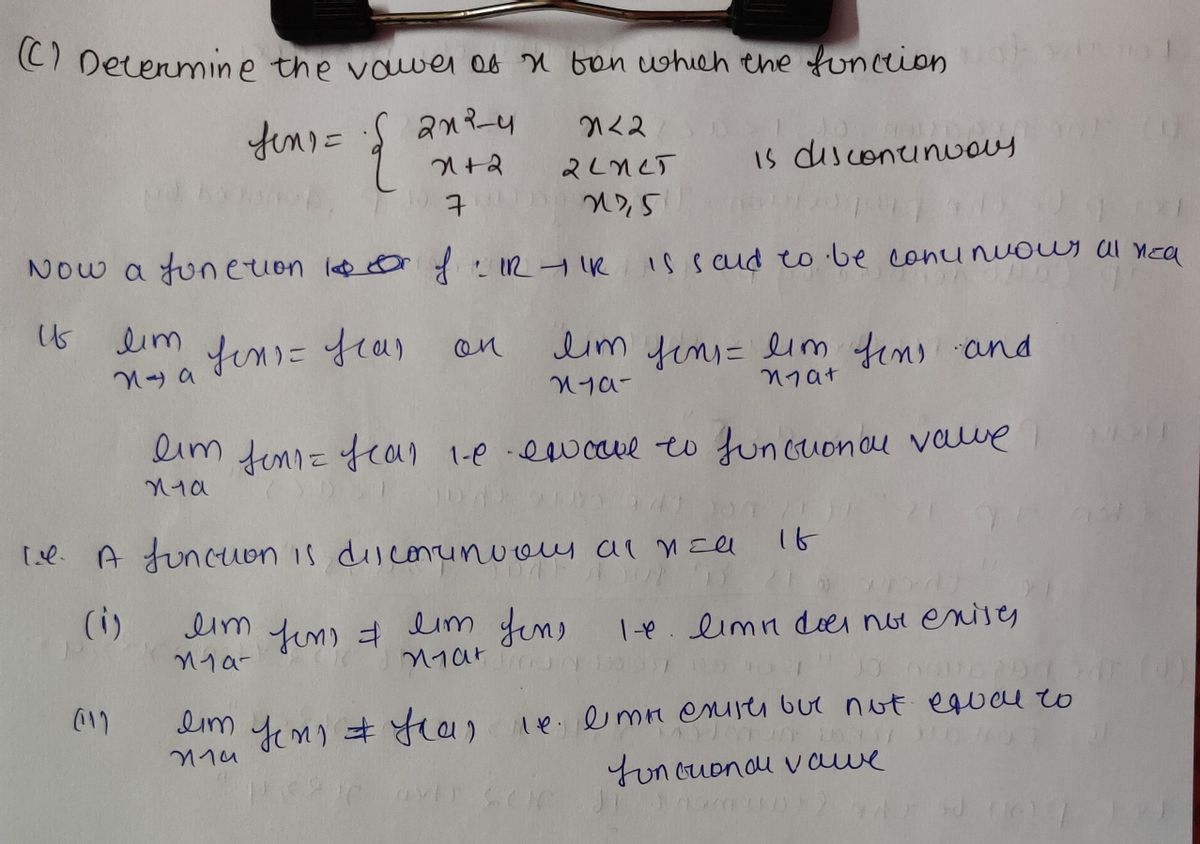 (C) Determine the values of x for which the function
f(x) = { 2x²-4 x<2
x+2 2<x<5 is discontinuous
7 x⩾5
Now a function f : IR → IR is said to be continuous at x=a
if lim f(x) = f(a) or lim f(x) = lim f(x) and
x→a x→a- x→a+
lim f(x) = f(a) i-e equal to functional value
x→a
i.e. A function is discontinuous at x=a if
(i) lim f(x) ≠ lim f(x) i-e. limit does not exists
x→a- x→a+
(ii) lim f(x) ≠ f(a) i.e. limit exists but not equal to
x→a
functional value